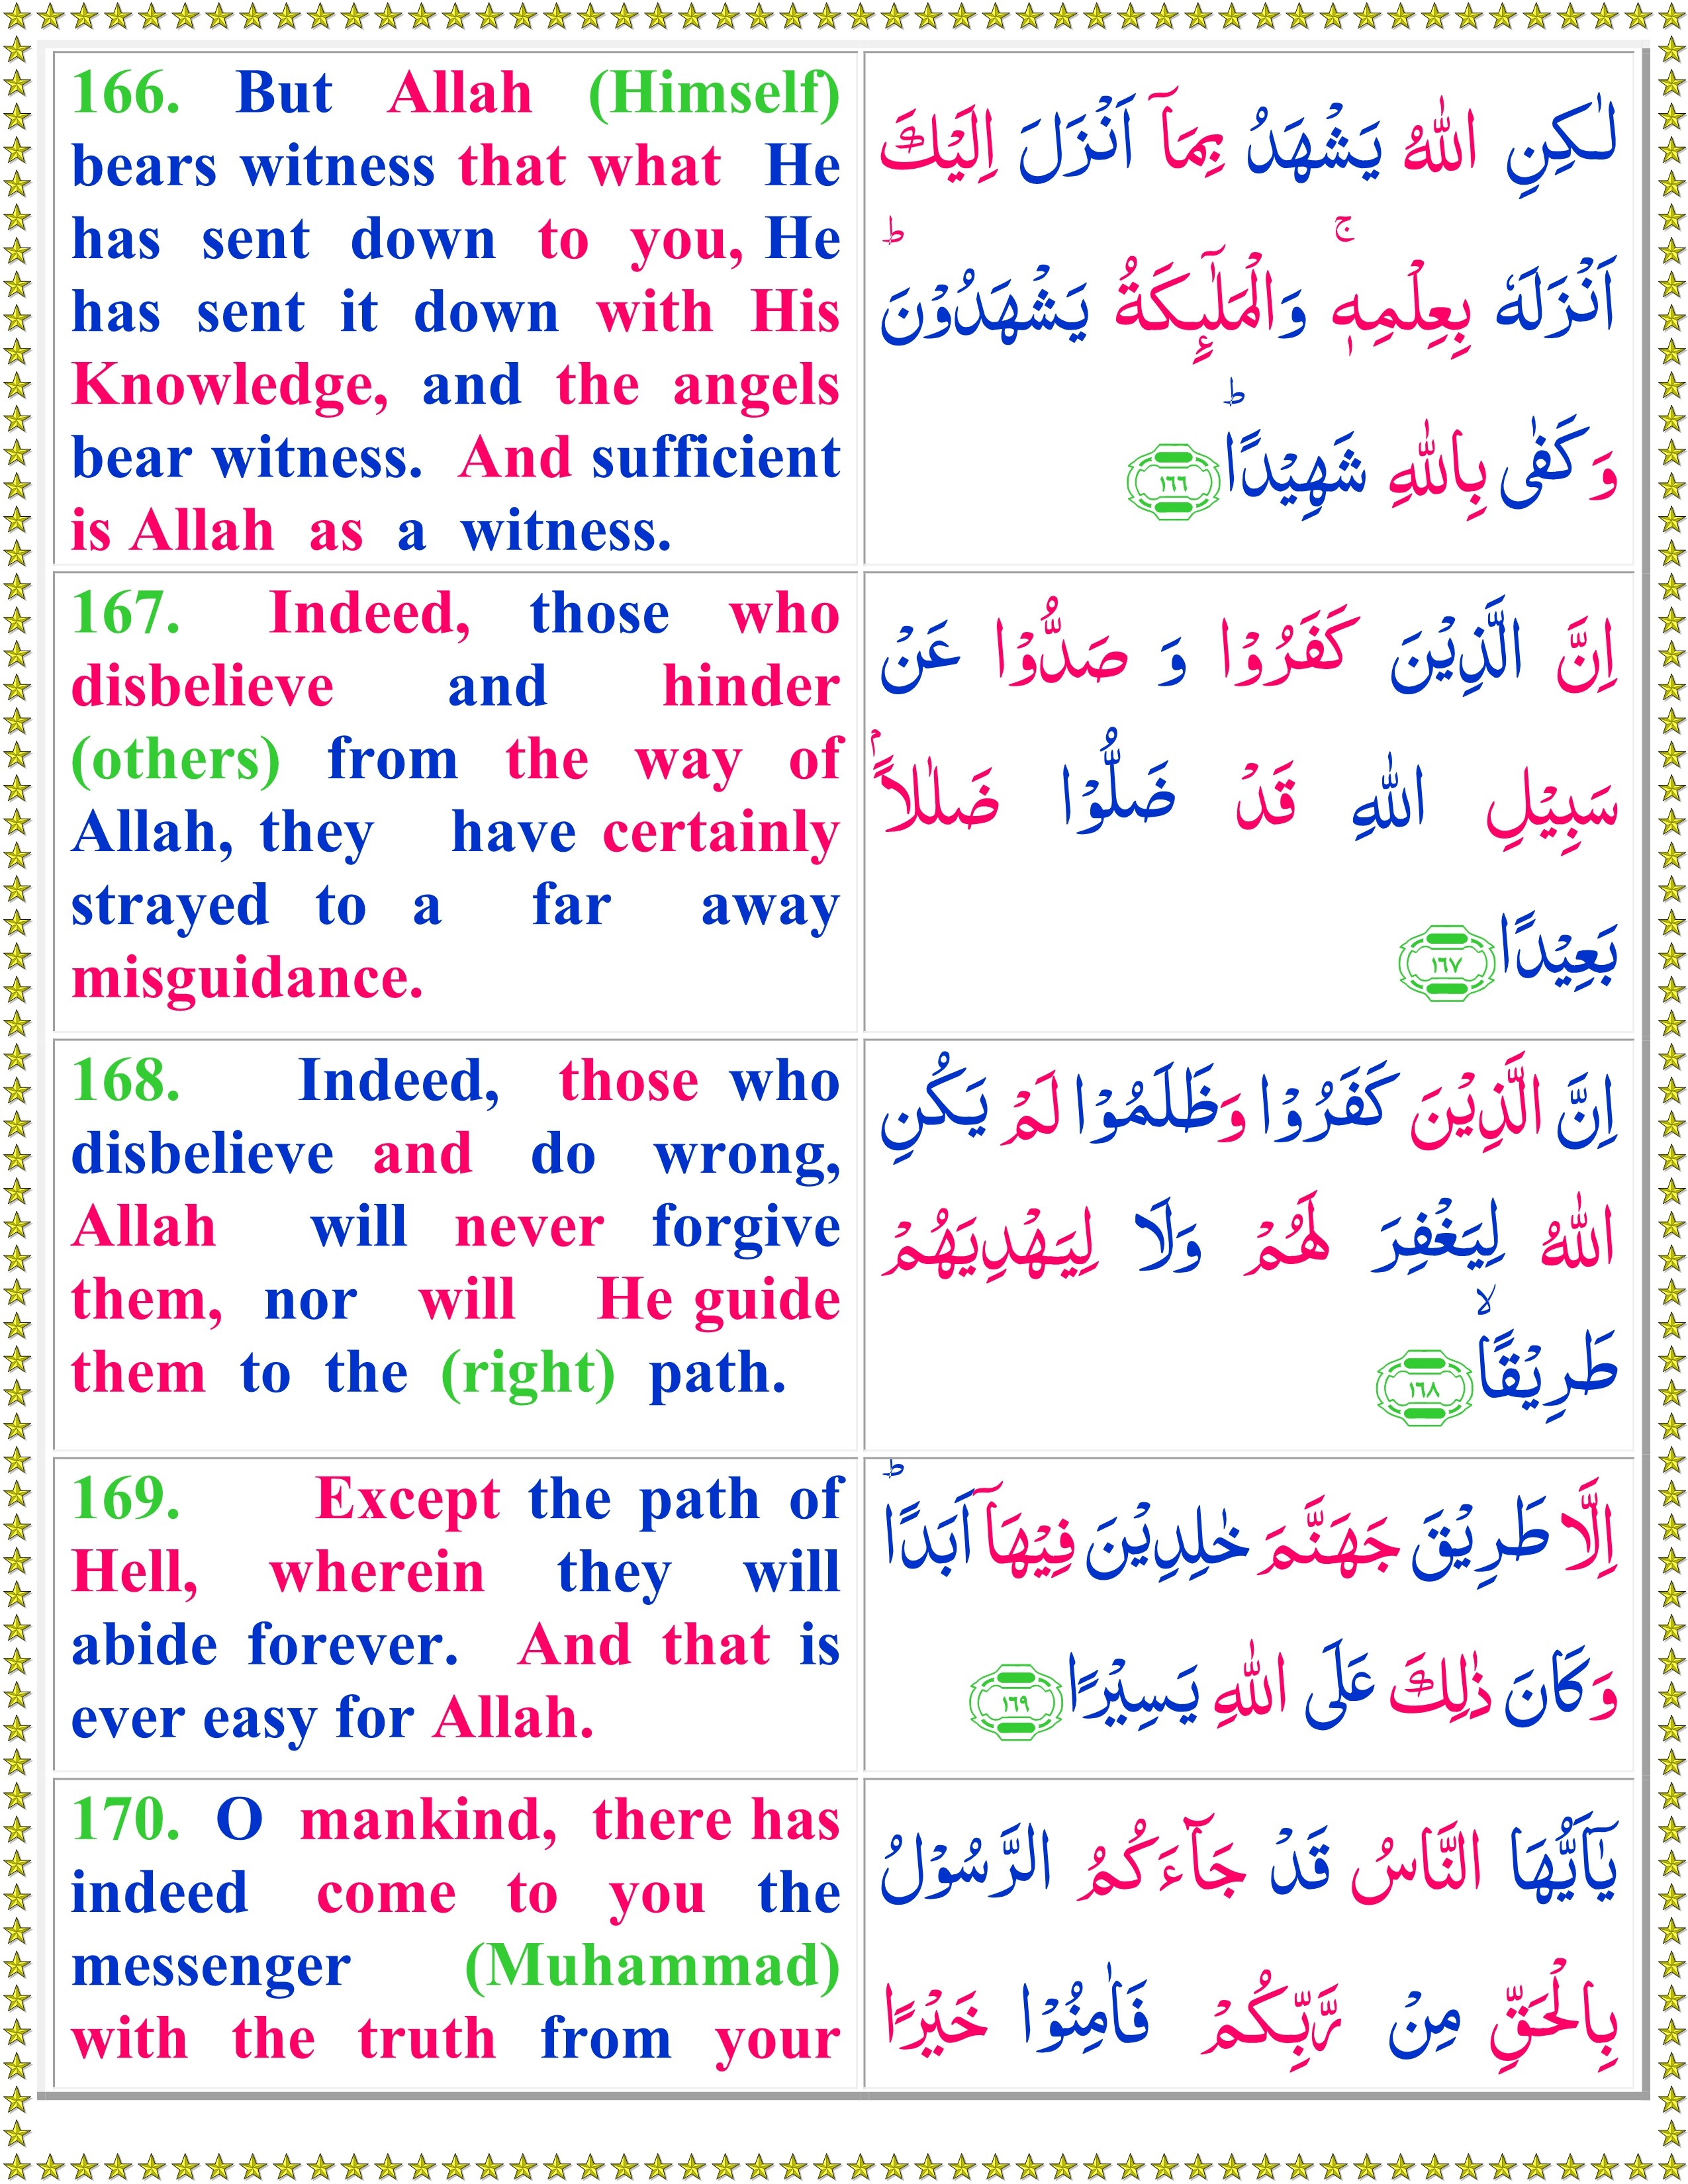 166. But Allah (Himself)
bears witness that what He
has sent down to you, He
has sent it down with His
Knowledge, and the angels
bear witness. And sufficient
is Allah as a witness.
لٰـكِنِ اللّٰهُ يَشْهَدُ بِمَاۤ اَنْزَلَ اِلَيْكَ
اَنْزَلَهٗ بِعِلْمِهٖ ۚ وَالْمَلٰٓٮِٕكَةُ يَشْهَدُوْنَ ؕ
وَكَفٰى بِاللّٰهِ شَهِيْدًا ؕ ١٦٦
167. Indeed, those who
disbelieve and hinder
(others) from the way of
Allah, they have certainly
strayed to a far away
misguidance.
اِنَّ الَّذِيْنَ كَفَرُوْا وَ صَدُّوْا عَنْ
سَبِيْلِ اللّٰهِ قَدْ ضَلُّوْا ضَلٰلاًۢ
بَعِيْدًا ١٦٧
168. Indeed, those who
disbelieve and do wrong,
Allah will never forgive
them, nor will He guide
them to the (right) path.
اِنَّ الَّذِيْنَ كَفَرُوْا وَظَلَمُوْا لَمْ يَكُنِ
اللّٰهُ لِيَـغْفِرَ لَهُمْ وَلَا لِيَـهْدِيَهُمْ
طَرِيْقًا ۙ ١٦٨
169. Except the path of
Hell, wherein they will
abide forever. And that is
ever easy for Allah.
اِلَّا طَرِيْقَ جَهَـنَّمَ خٰلِدِيْنَ فِيْهَاۤ اَبَدًا ؕ
وَكَانَ ذٰلِكَ عَلَى اللّٰهِ يَسِيْرًا ١٦٩
170. O mankind, there has
indeed come to you the
messenger (Muhammad)
with the truth from your
يٰۤاَيُّهَا النَّاسُ قَدْ جَآءَكُمُ الرَّسُوْلُ
بِالْحَـقِّ مِنْ رَّبِّكُمْ فَاٰمِنُوْا خَيْرًا